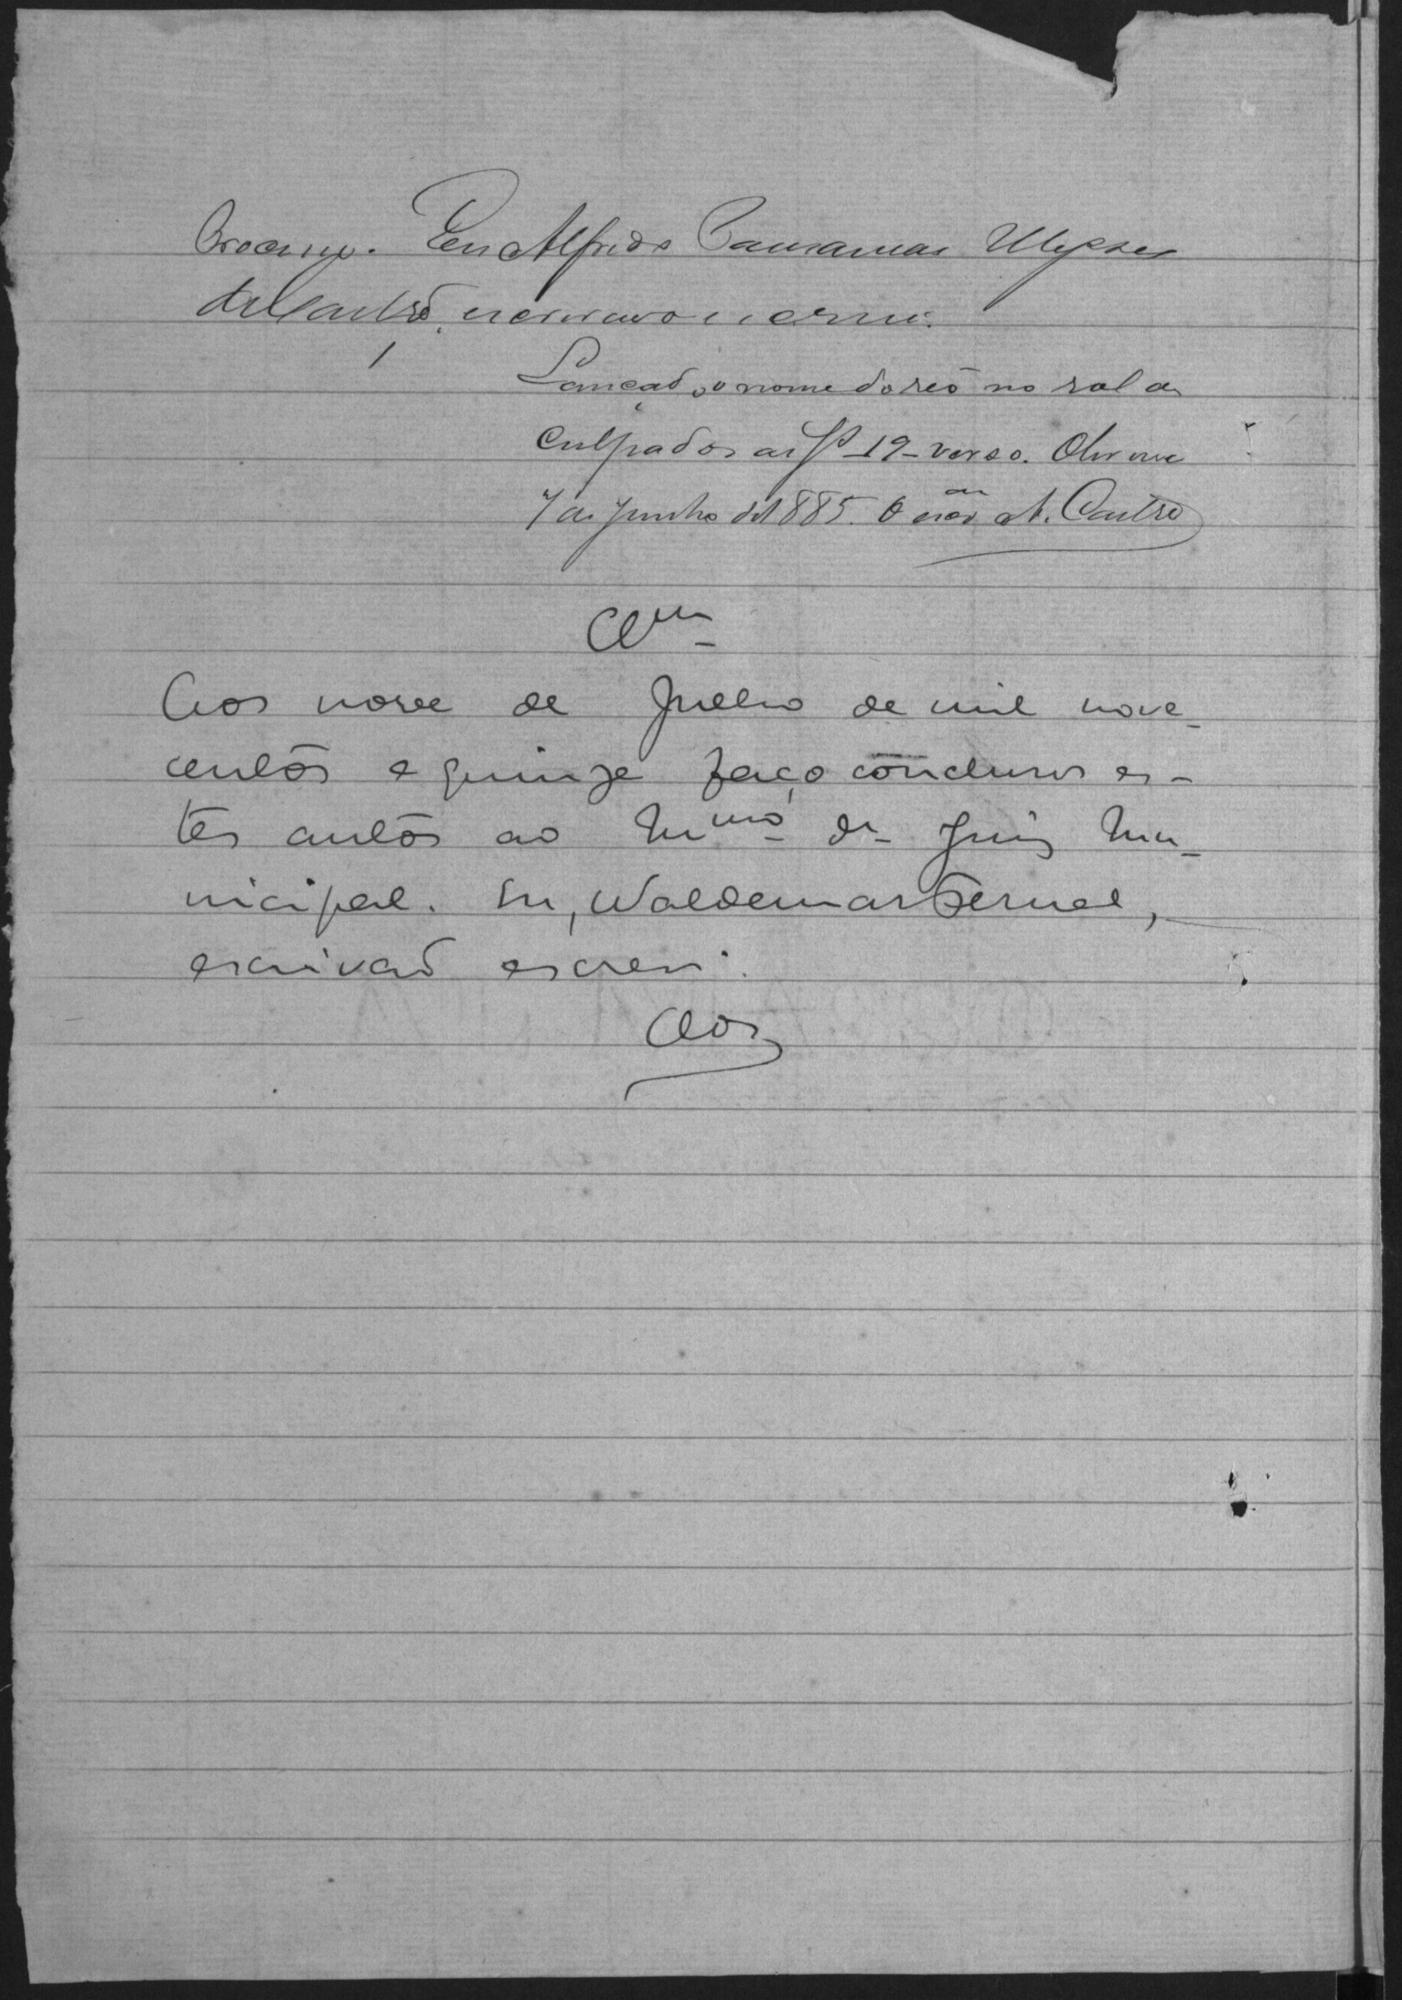 Eu Alfredo Ulysses
de Castro, escrivão o escrevi.
Lançado o nome do reo no rol de
culpados as fs 19 verso.
7 de Junho de 1885. O esc.am A. Castro
Clm
Aos nove de Julho de mil nove-
centos e quinze faço conclusos es-
tes autos ao Mmo dr Juiz Mu-
nicipal. Eu, Waldemar
escrivão escrevi.
Clos